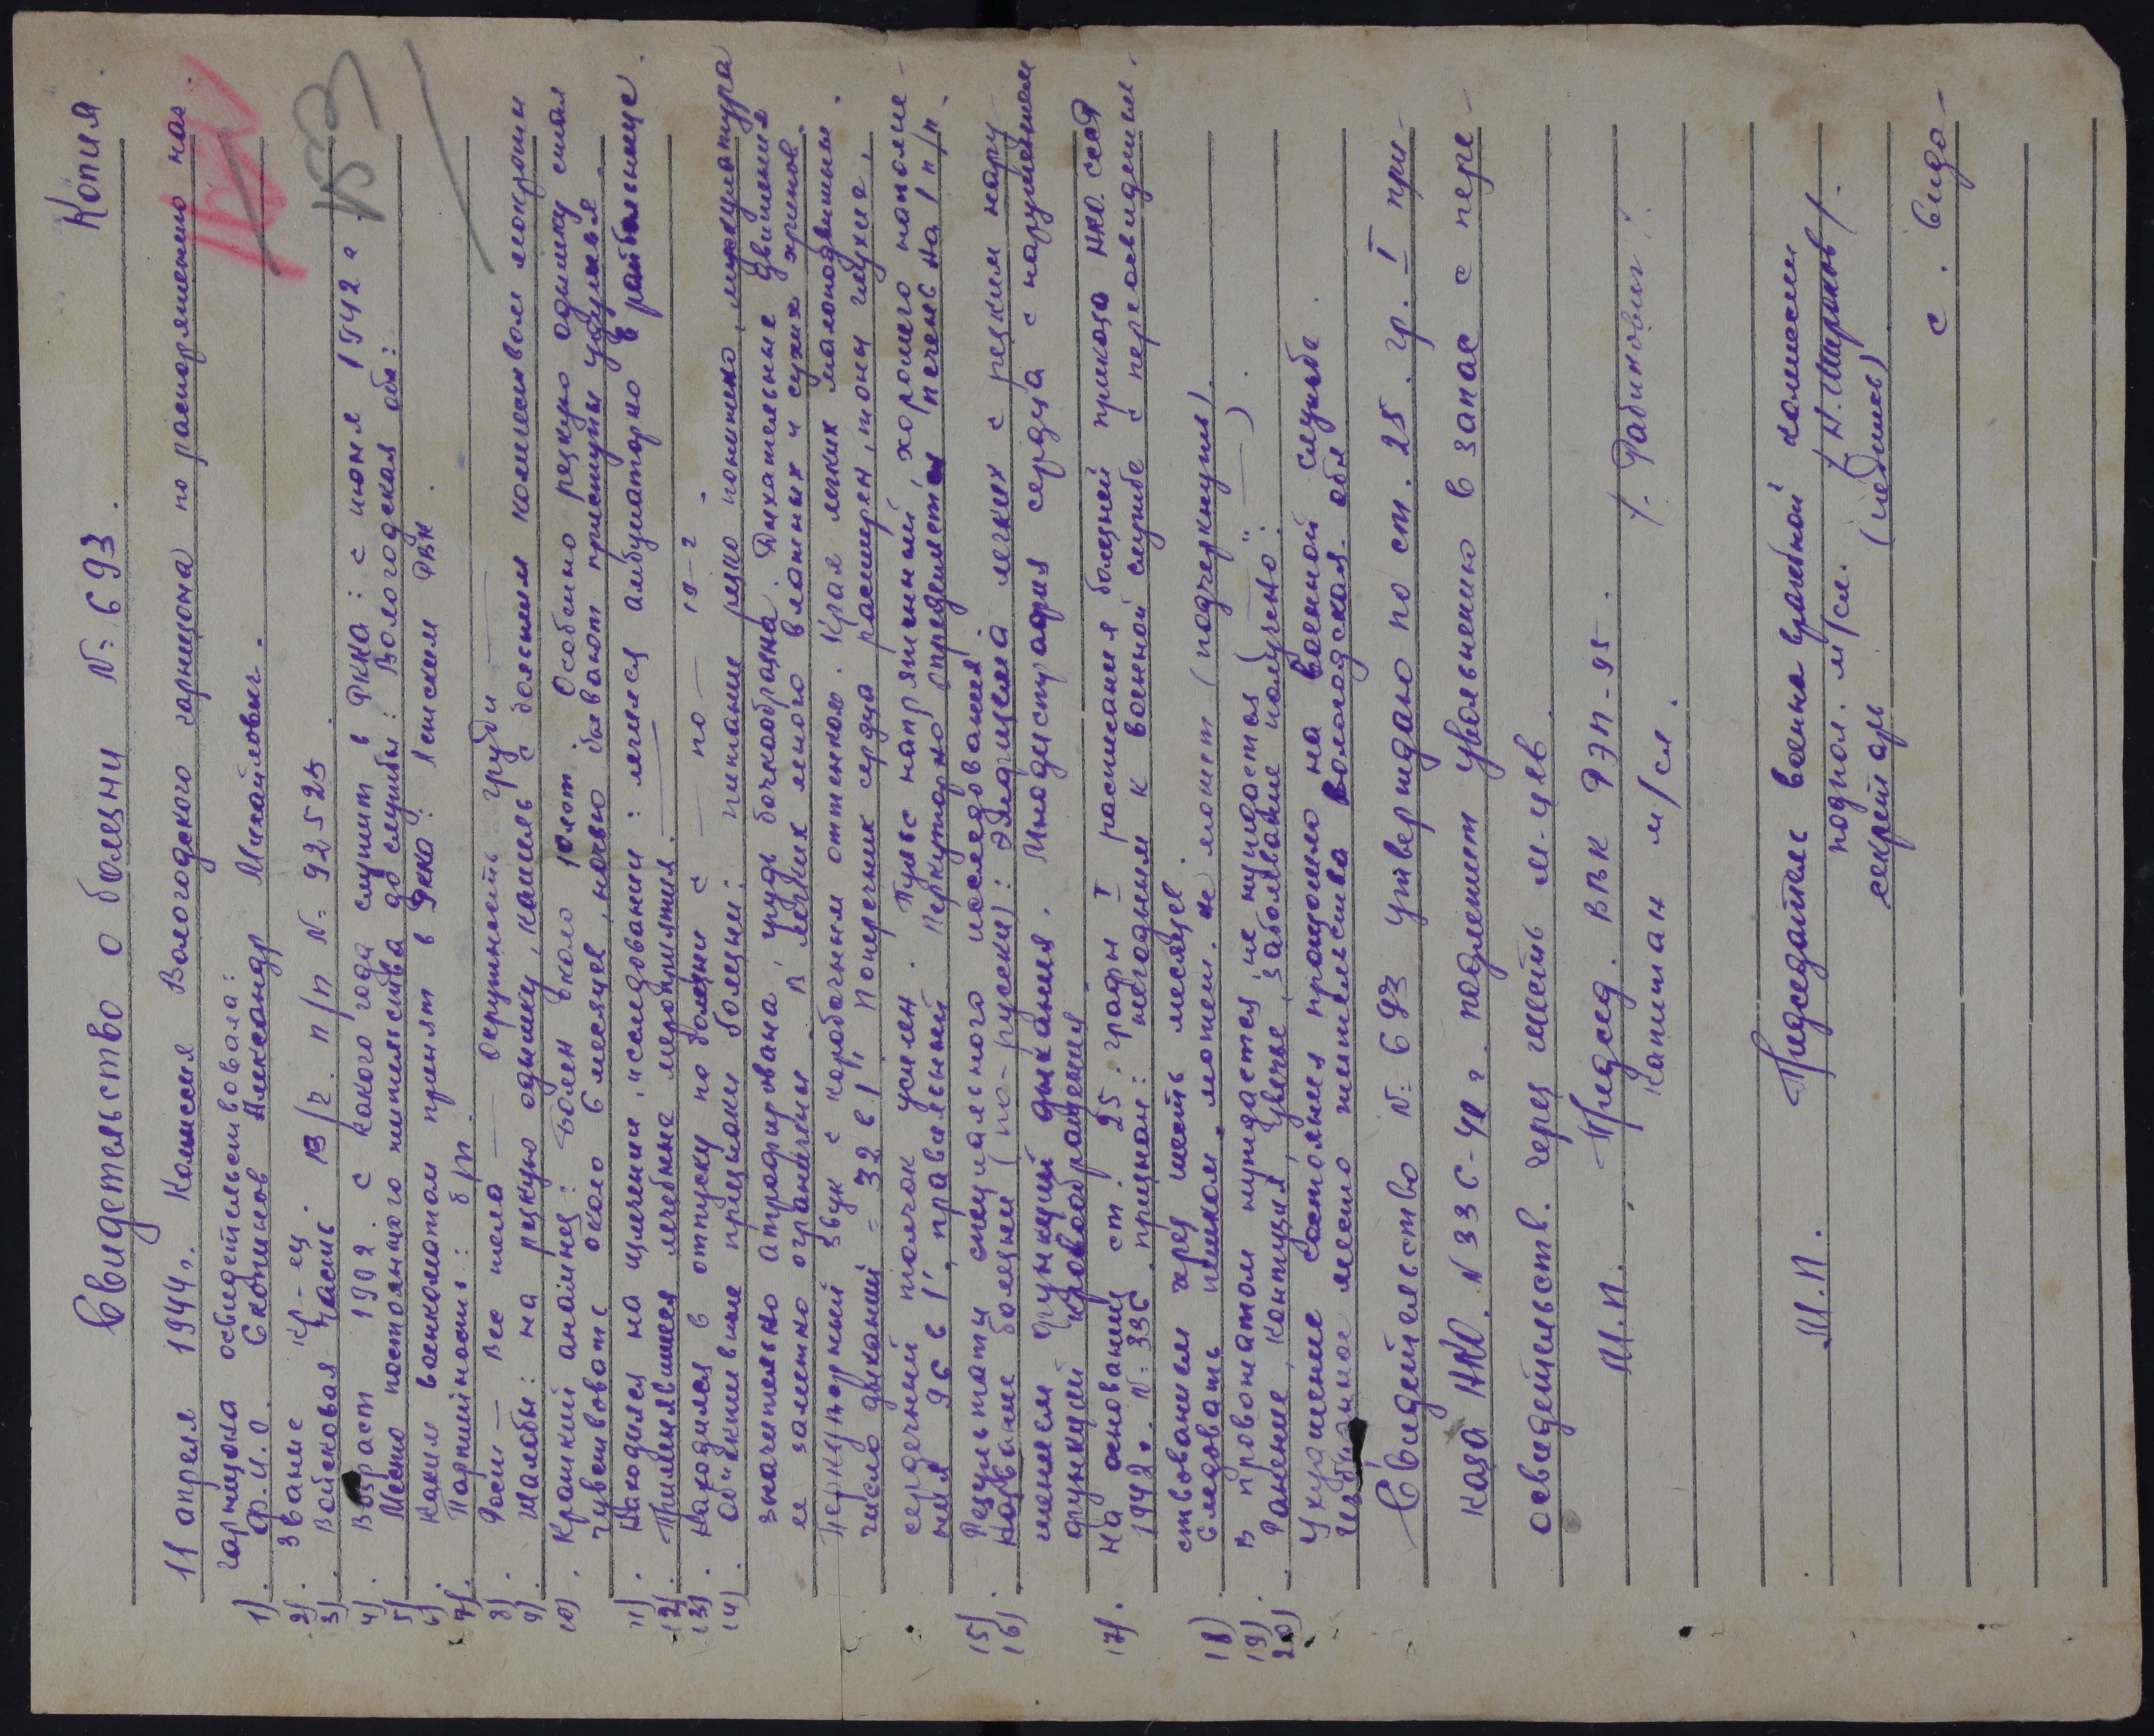 Копия.
Свидетельство о болезни №: 693.
11 апреля 1944 г. Комиссия Вологодского гарнизона по распоряжению нач.
гарнизона освидетельствовала:
1). Ф.И.О. Скопинов Александр Михайлович.
2). Звание кр-ец.
3). Войсковая часть 13/г. п/п №: 92525.
4). Возраст 1992. С какого года служит в РККА: с июня 1942 г.
5) Место постоянного жительства до службы: Вологодская обл:
6). Каким военкоматом принят в РККА: Ленским РВК.
7). Партийность: б/п.
8). Рост — Вес тела — окружность груди —
9). Жалобы: на резкую одышку, кашель с большим количеством мокроты
10). Краткий анамнез: Болен около 10 лет. Особенно резкую одышку стал
чувствовать около 6 месяцев, ночью бывают приступы удушья.
11). Находился на излечении, исследовании: лечился амбулаторно в райбольнице.
12). Применявшиеся лечебные мероприятия. —
13). Находился в отпуску по болезни с — по — 19 — г.
14). Объективные признаки болезни: питание резко понижено, мускулатура
значительно атрофирована, грудь бочкообразна. Дыхательные движения
ее заметно ограничены. В легких много влажных и сухих хрипов.
Перкуторный звук с коробочным оттенком. Края легких малоподвижны.
число дыханий = 32 в 1". Поперечник сердца расширен, тоны глухие,
сердечный толчок усилен. Пульс напряженный, хорошего наполне-
ния 96 в 1", правильный. Перкуторно определяется печень на 1 п/п.
15). Результаты специального исследования:
16). Название болезни (по-русски): Эмфизема легких с резким нару-
шением функций дыхания. Миодистрофия сердца с нарушением
функций кровообращения.
17). На основании ст. 25. графы I расписания болезней приказа НКО. СССР
1942 г. №: 336 признан: негодным к военной службе с переосвидетель-
ствованием через шесть месяцев.
18) Следовать пешком „может, не может (подчеркнуть).
19). В провожатом нуждается, не нуждается (" — ").
20). Ранение, контузия, увечье, заболевание получено:
Ухудшение состояния произошло на военной службе.
Избранное место жительства Вологодская обл
Свидетельство №: 693 утверждаю по ст. 25. гр. I при-
каза НКО. №336-42 г. подлежит увольнению в запас с пере-
освидетельств. через шесть м-цев
М.П. Председ. ВВК РЭП-95.
капитан м/сл. /. Рабинович /.
М.П. Председатель военно врачебной комиссии
подпол. м/сл. /Н. Широков/.
секретарь (подпись)
с. Видо-